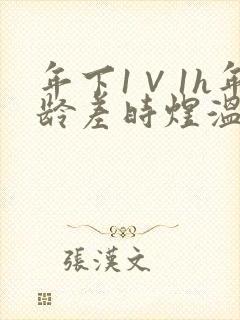 年下1V1h年
龄差时煜温
張漢文